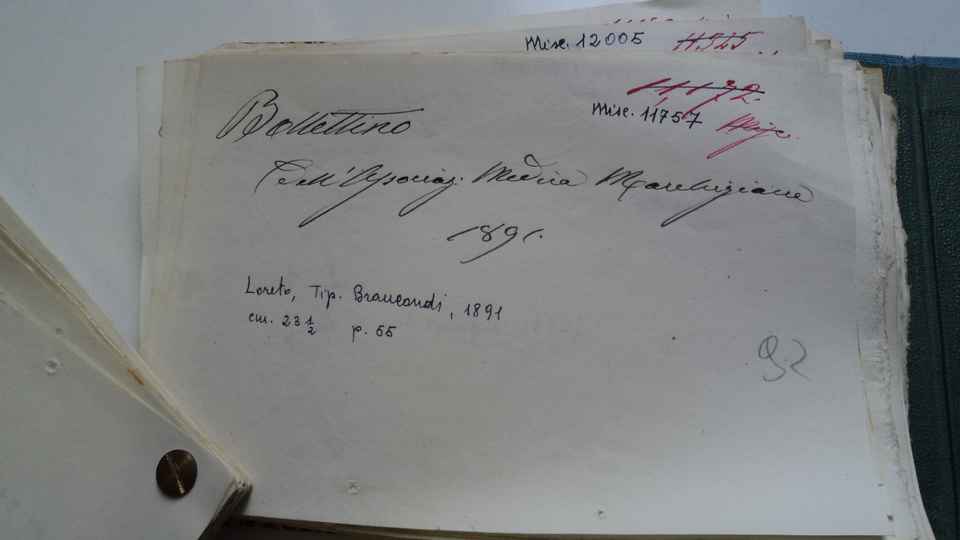 Misc. 12005 11.525
11172.
Misc. 11757
Bollettino
dell'Associaz. Medica Marchigiana
1891.
Loreto, Tip. Brancondi, 1891
cm. 23 1/2 p. 55
92